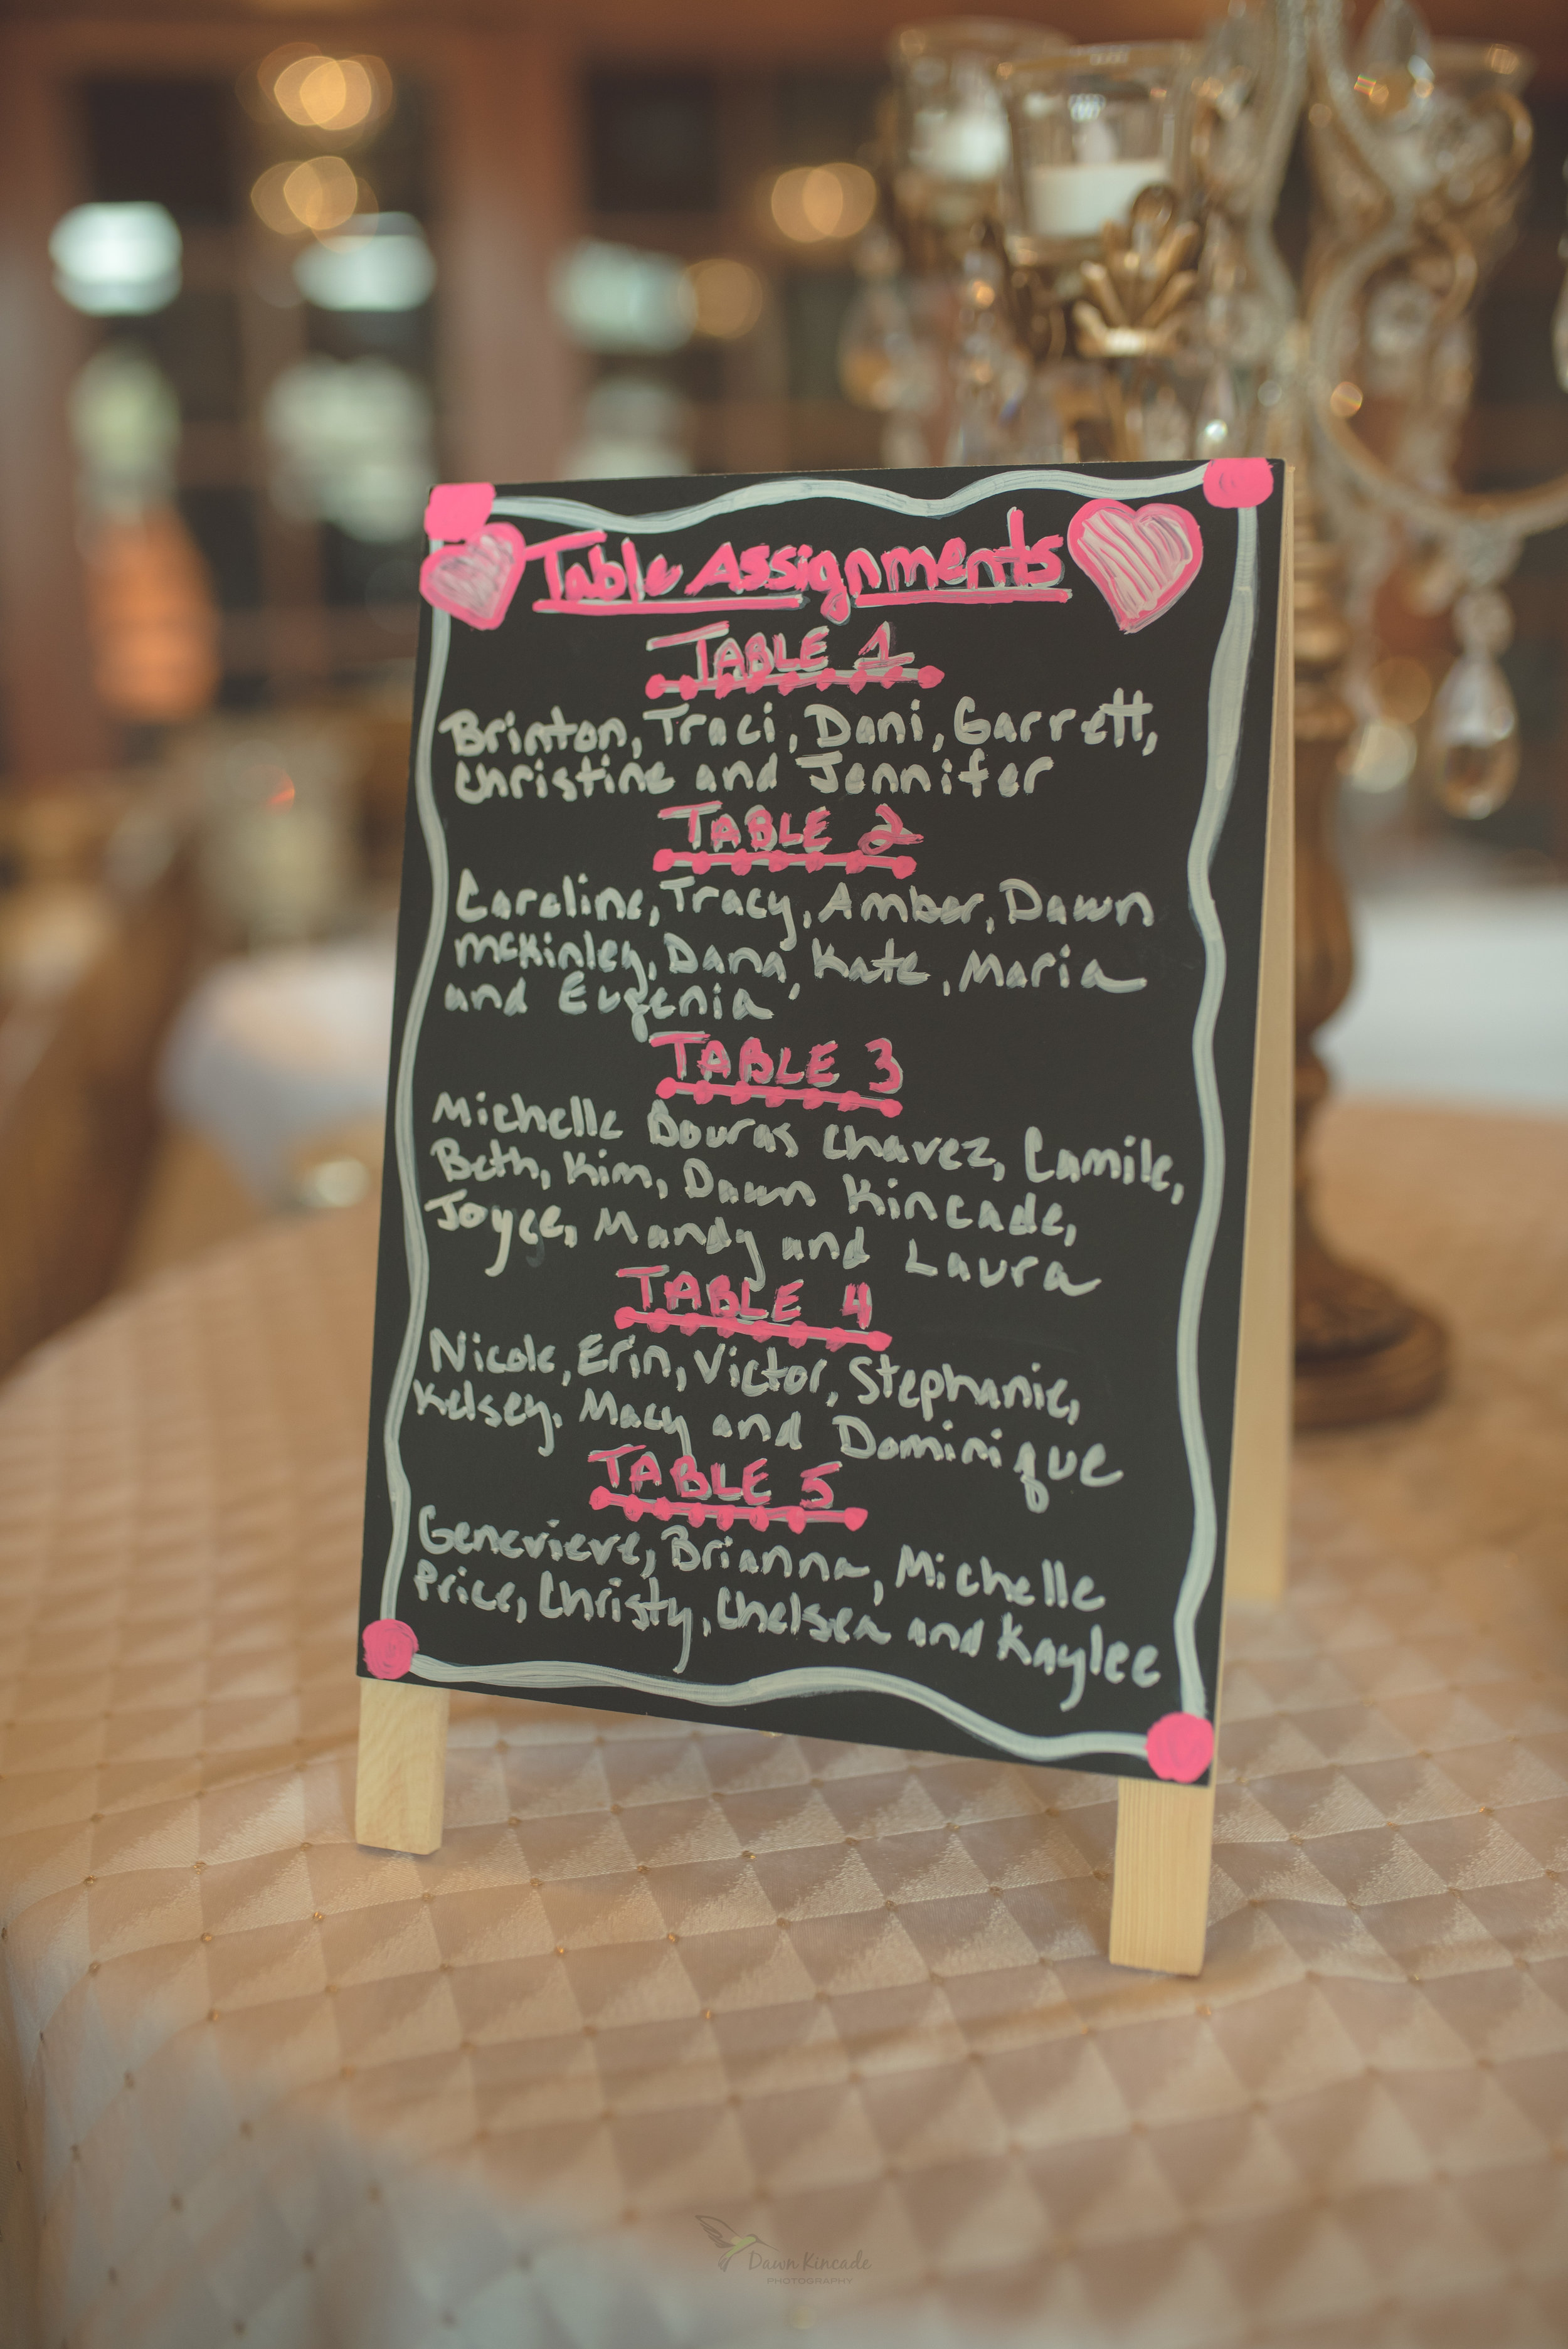 Table Assignments
TABLE 1
Brinton, Traci, Dani, Garrett,
Christine and Jennifer
TABLE 2
Caroline, Tracy, Amber, Dawn
McKinley, Dana, Kate, Maria
and Eugenia
TABLE 3
Michelle Bouras Chavez, Camile,
Beth, Kim, Dawn Kincade,
Joyce, Mandy and Laura
TABLE 4
Nicole, Erin, Victor, Stephanie,
Kelsey, Macy and Dominique
TABLE 5
Genevieve, Brianna, Michelle
Price, Christy, Chelsea and Kaylee
Dawn Kincade
PHOTOGRAPHY